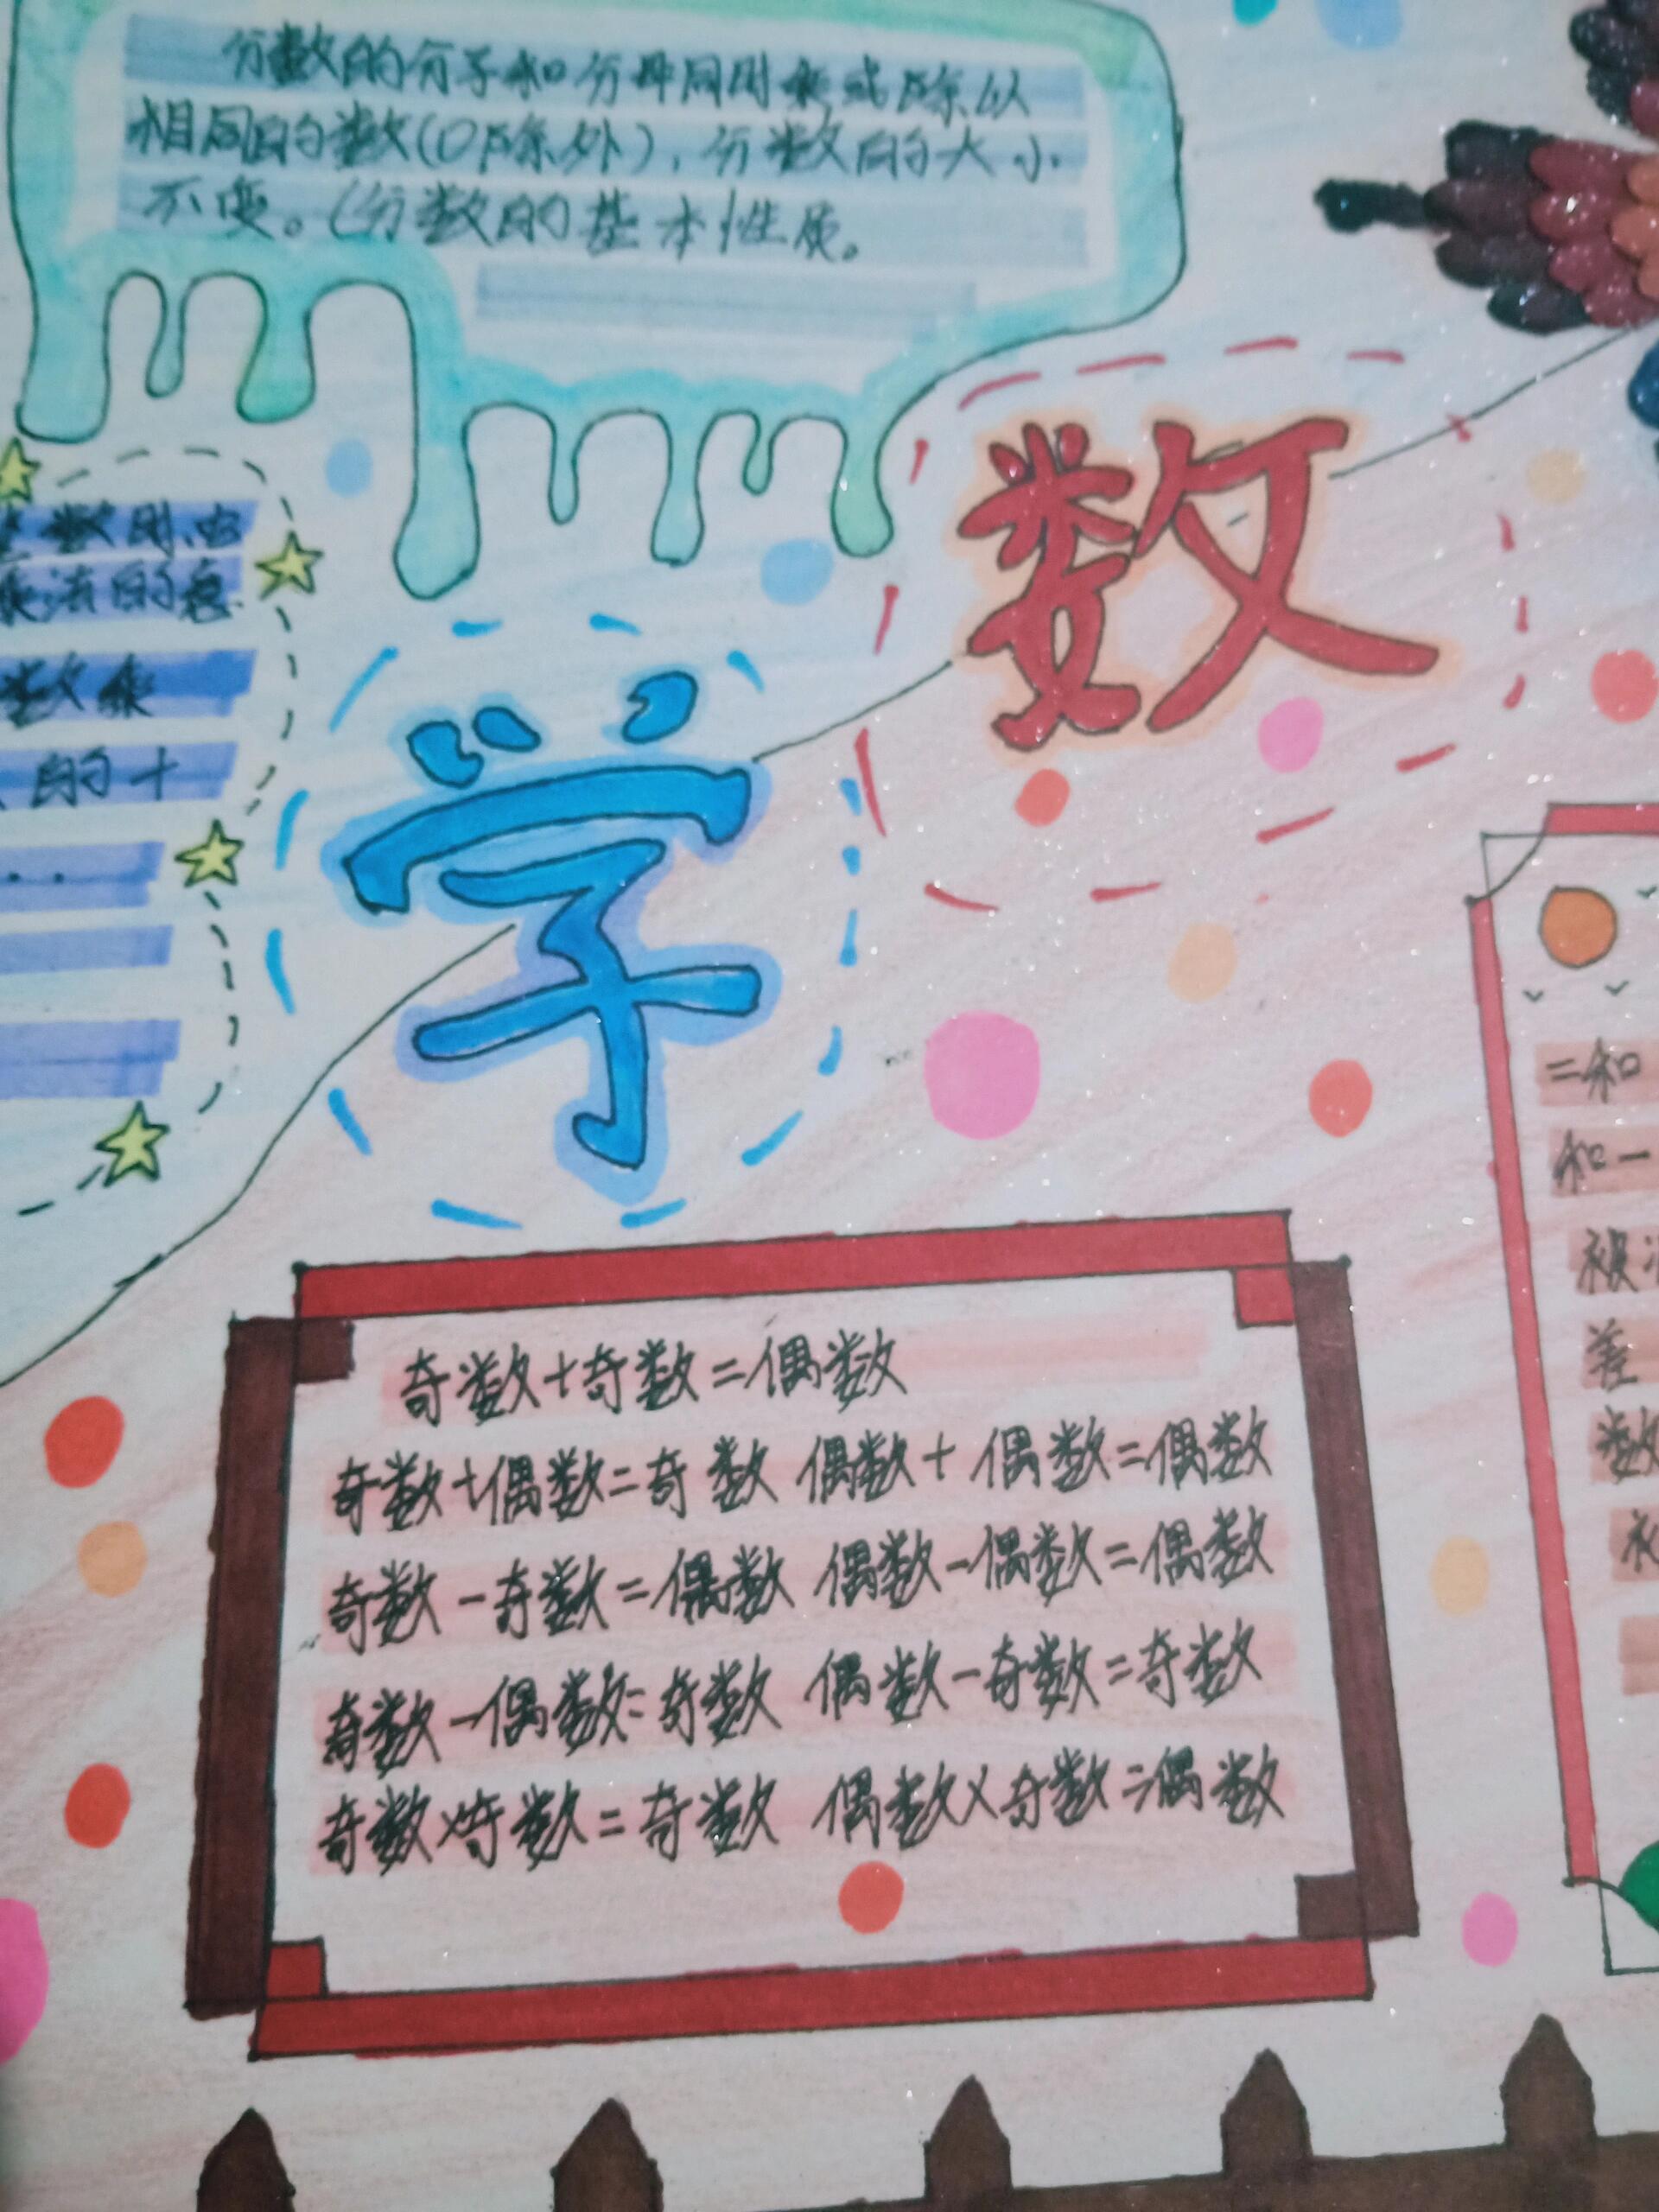 分数的分子和分母同时乘或除以
相同的数(0除外),分数的大小
不变。(分数的基本性质。
数
学
乘法的意
数乘
的十
..
奇数+奇数=偶数
奇数+偶数=奇数 偶数+偶数=偶数
奇数-奇数=偶数 偶数-偶数=偶数
奇数-偶数=奇数 偶数-奇数=奇数
奇数×奇数=奇数 偶数×奇数=偶数
=和
和一
被
差
数